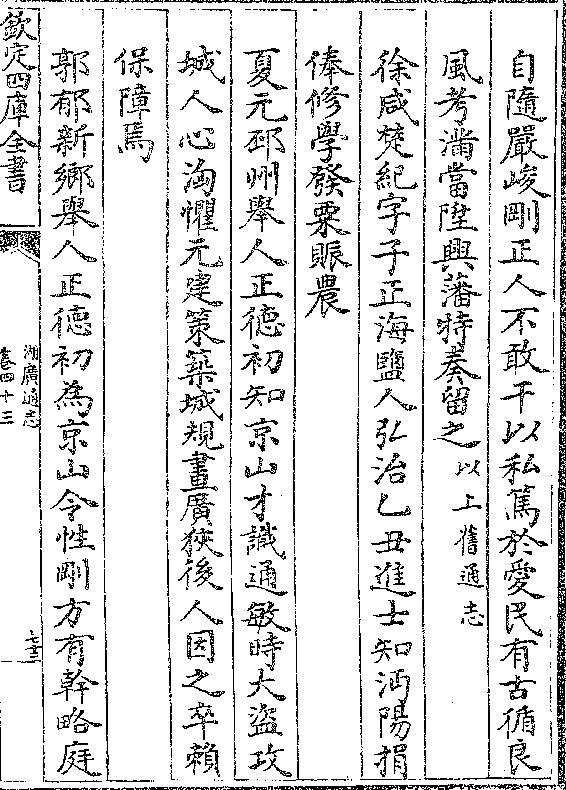 自隨嚴峻剛正人不敢干以私篤於愛民有古循良
風考滿當陞興藩特奏留之以上舊通志
徐咸楚紀字子正海鹽人弘治乙丑進士知沔陽捐
俸修學發粟賑農
夏元邳州舉人正德初知京山才識通敏時大盜攻
城人心洶懼元建策築城規畫廣狹後人因之卒賴
保障焉
郭郁新鄉舉人正德初為京山令性剛方有幹略庭
欽定四庫全書
湖廣通志
卷四十三